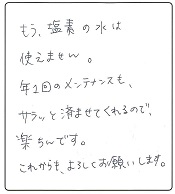 もう、塩素の水は
使えません。
年1回のメンテナンスも、
サラッと済ませてくれるので、
楽ちんです。
これからも、よろしくお願いします。